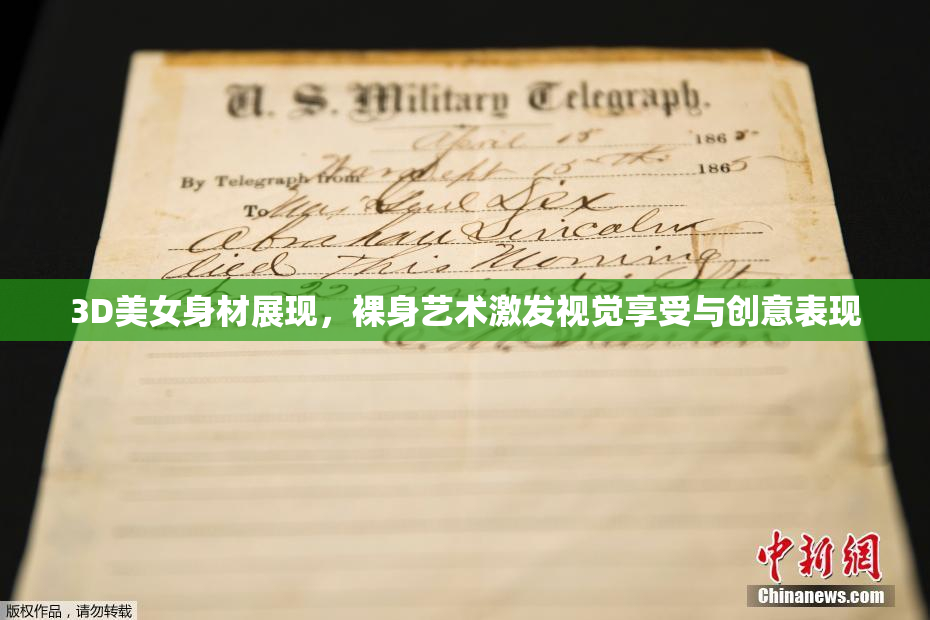 U. S. Military Telegraph.
April 15 1865
By Telegraph from War Dept 15th 1865
To Maj Genl Dix
Abraham Lincoln
died This Morning
at 22 minutes after
3D美女身材展现，裸身艺术激发视觉享受与创意表现
E. M. Stanton
中新网
Chinanews.com
版权作品，请勿转载